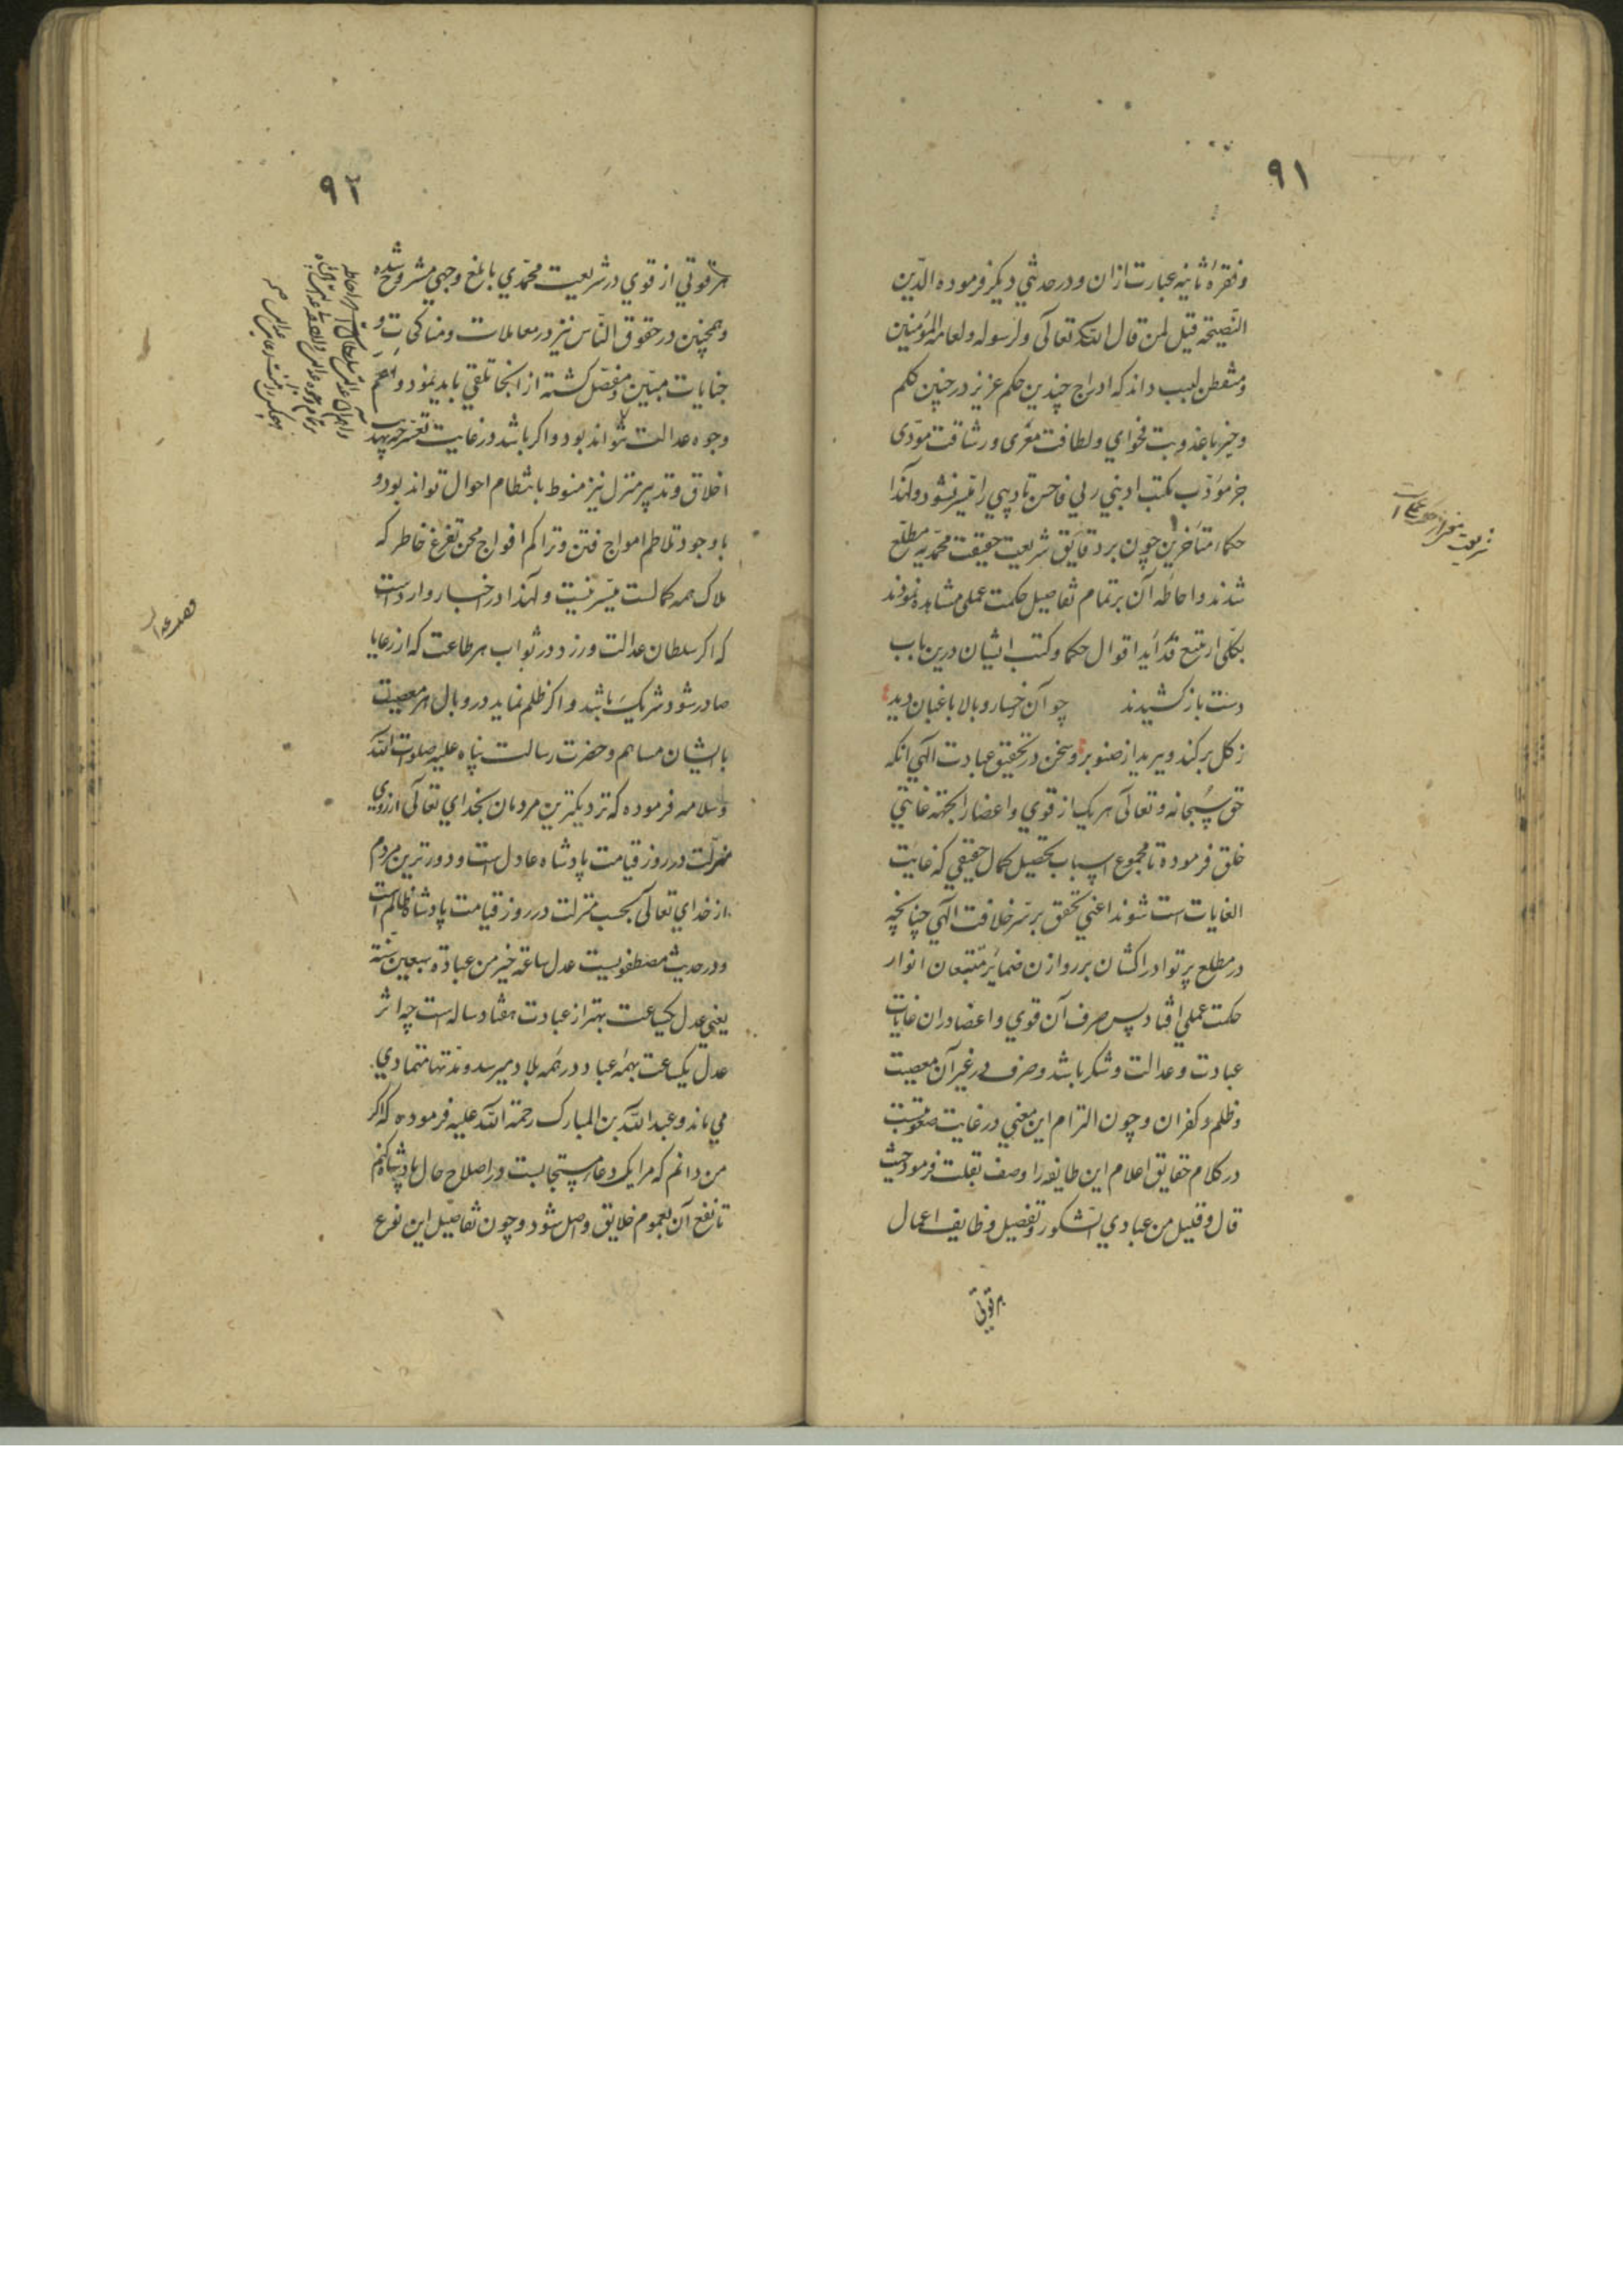 ۹۱
وفقرهٔ ثانیه عبارت ازان ودر حدیثی دیکر فرموده الدّین
النّصیحة قیل لمن قال لله تعالی ولرسوله ولعامة المؤمنین
ومتفطن لبیب داند که ادراج چندین حکم عزیز در چنین کلم
وجیز با عذوبت فحوای ولطافت مغزی ورشاقت مؤدی
جز مؤدّب بکتب ادبنی ربی فاحسن تادیبی را میسر نشود ولهذا
حکماء متأخرین چون بر دقایق شریعت حقیقت محمّدیه مطلع
شدند واحاطهٔ آن بر تمام تفاصیل حکمت عملی مشاهده نمودند
بکلی از تتبع فوائد اقوال حکما وکتب ایشان درین باب
دست باز کشیدند چو آن رخسار وبالا باغبان دید
ز کل برکند و ببرید از صنوبر وسخن در تحقیق عبادت الهی آنکه
حق سبحانه وتعالی هر یک از قوی واعضا را بجهة غایتی
خلق فرموده تا مجموع اسباب تحصیل کمال حقیقی که غایت
الغایات است شوند اعنی تحقق بر سّر خلافت الهی چنانچه
در مطلع پرتو ادراکشان بر روازن ضمایر متتبعان انوار
حکمت عملی افتاد پس صرف آن قوی واعضا دران غایات
عبادت وعدالت وشکر باشد وصرف در غیر آن معصیت
وظلم وکفران وچون التزام این معنی در غایت صعوبتست
در کلام حقایق اعلام این طایفه را وصف بقلت فرمود حیث
قال وقلیل من عبادی الشکور وتفصیل وظایف اعمال
هر قوتی
شریعت
۹۲
هر قوتی از قوی در شریعت محمّدی بابلغ وجهی مشروح شده
وهمچنین در حقوق النّاس نیز در معاملات ومناکحات و
جنایات مبیّن ومفصّل کشته از انجا تلقی باید نمود واهم
وجوه عدالت تواند بود واکر باشد در غایت تعسّر چه تهذیب
اخلاق وتدبیر منزل نیز منوط بانتظام احوال تواند بود و
با وجود تلاطم امواج فتن وتراکم افواج محن تفرغ خاطر که
ملاک همه کمالست میّسر نیست ولهذا در اخبار وارد است
که اکر سلطان عدالت ورزد در ثواب هر طاعت که از رعایا
صادر شود شریک باشد واکر ظلم نماید در وبال هر معصیت
با ایشان مساهم وحضرت رسالت پناه علیه صلوات الله
وسلامه فرموده که نزدیکترین مردمان بخدای تعالی از روی
منزلت در روز قیامت پادشاه عادل است ودورترین مردم
از خدای تعالی بحسب منزلت در روز قیامت پادشاه ظالم است
ودر حدیث مصطفویست عدل ساعة خیر من عبادة سبعین سنة
یعنی عدل یکساعت بهتر از عبادت هفتاد ساله است چه اثر
عدل یکساعت بهمه عباد در همه بلاد میرسد ومدّتها متمادی
می ماند وعبد الله بن المبارک رحمة الله علیه فرموده که اکر
من دانم که مرا یک دعا مستجابست در اصلاح حال پادشاه کنم
تا نفع آن بعموم خلایق واصل شود وچون تفاصیل این نوع